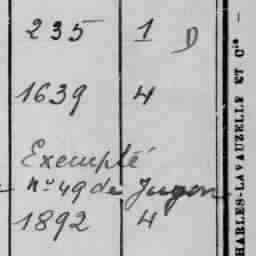 235 1 D
1639 4
Exempté
n° 49 de Jugon
1892 4
HARLES-LAVAUZELLE ET Cie —